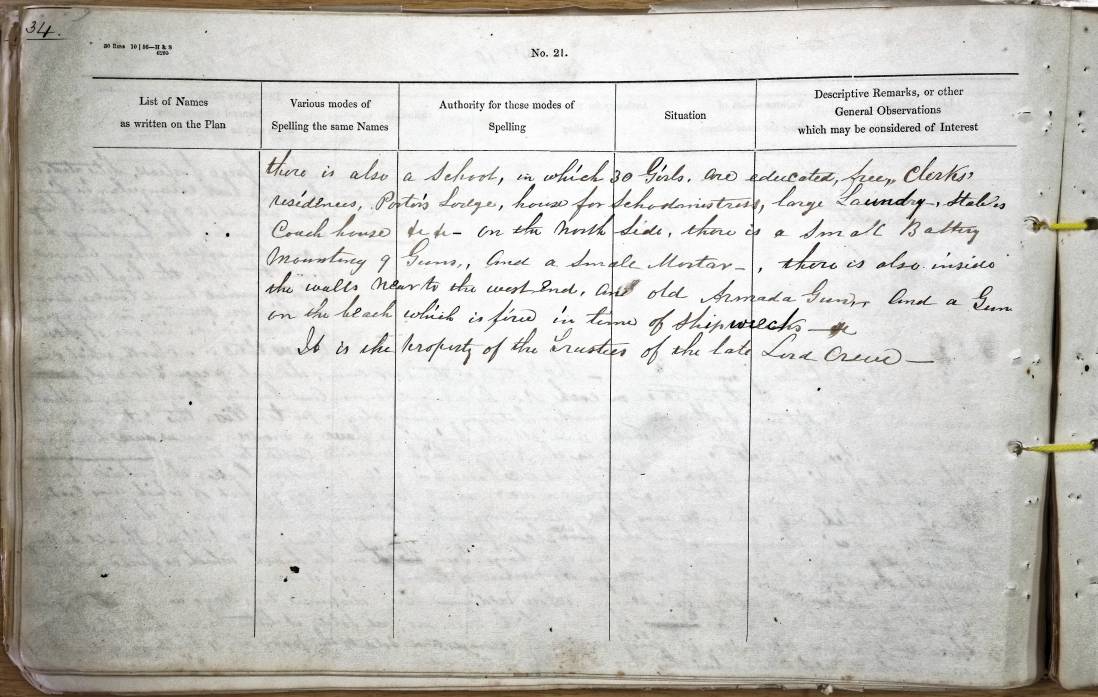 34.
No. 21.
List of Names
as written on the Plan
Various modes of
Spelling the same Names
Authority for these modes of
Spelling
Situation
Descriptive Remarks, or other
General Observations
which may be considered of Interest
there is also a School, in which 30 Girls, are educated, free, Clerks'
residences, Porter's Lodge, house for Schoolmistress, large Laundry, Stables
Coach house &c &c - on the North Side, there is a Small Battery
Mounting 9 Guns, and a Small Mortar - , there is also inside
the walls near to the west End, an old Armada Gun, and a Gun
on the beach which is fired in time of Shipwrecks —
It is the property of the Trustees of the late Lord Crewe —